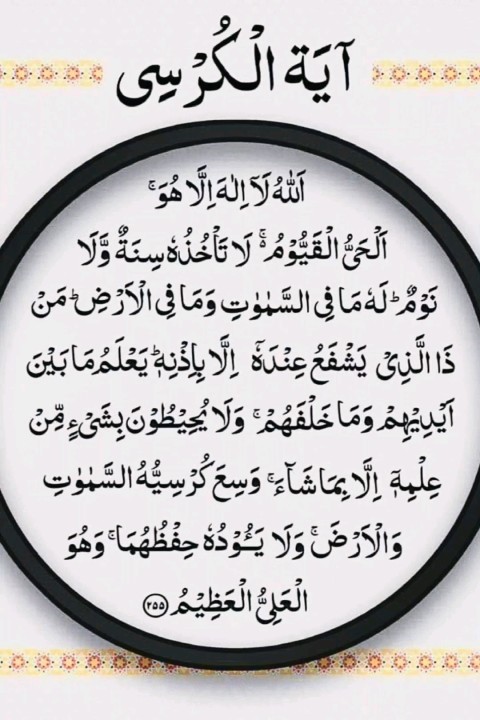 آيَة الْكُرْسِى
اَللّٰهُ لَآ اِلٰهَ اِلَّا هُوَ ۚ
اَلْحَىُّ الْقَيُّوْمُ ۬ۚ لَا تَاْخُذُهٗ سِنَةٌ وَّلَا
نَوْمٌ ؕ لَهٗ مَا فِى السَّمٰوٰتِ وَمَا فِى الْاَرْضِ ؕ مَنْ
ذَا الَّذِىْ يَشْفَعُ عِنْدَهٗۤ اِلَّا بِاِذْنِهٖ ؕ يَعْلَمُ مَا بَيْنَ
اَيْدِيْهِمْ وَمَا خَلْفَهُمْ ۚ وَلَا يُحِيْطُوْنَ بِشَىْءٍ مِّنْ
عِلْمِهٖۤ اِلَّا بِمَا شَآءَ ۚ وَسِعَ كُرْسِيُّهُ السَّمٰوٰتِ
وَالْاَرْضَ ۚ وَلَا يَـُٔوْدُهٗ حِفْظُهُمَا ۚ وَهُوَ
الْعَلِىُّ الْعَظِيْمُ ﴿۲۵۵﴾